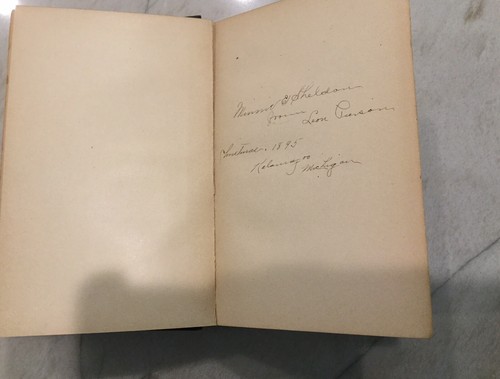 Minnie G Sheldon
from
Leon Pierson
Christmas. 1895
Kalamazoo
Michigan